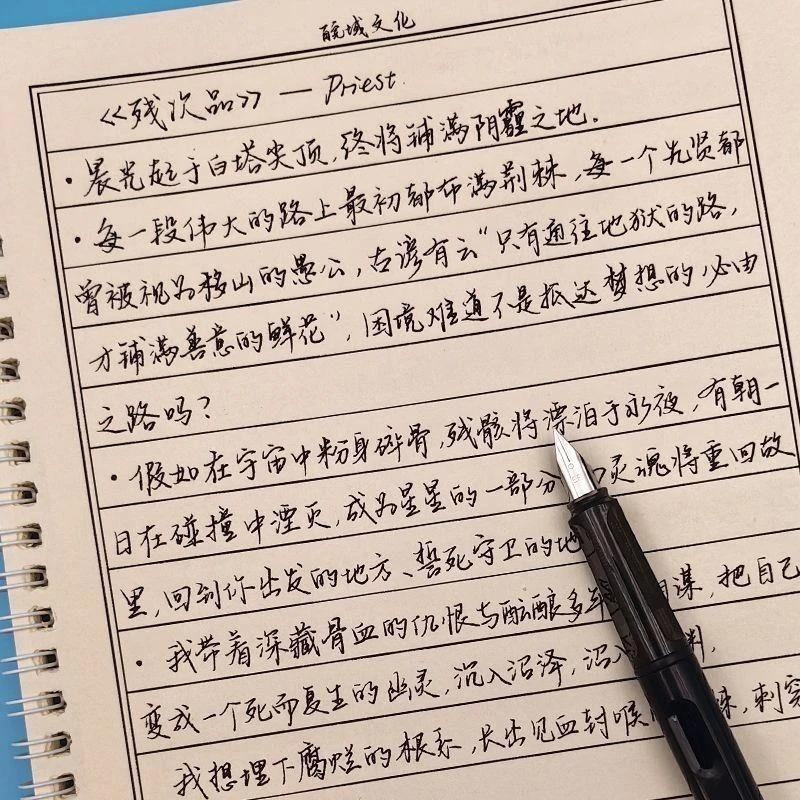 皖域文化
《残次品》—Priest
·晨光起于白塔尖顶,终将铺满阴霾之地.
·每一段伟大的路上最初都布满荆棘,每一个先贤都
曾被视为移山的愚公,古谚有云“只有通往地狱的路,
才铺满善意的鲜花”,困境难道不是抵达梦想的必由
之路吗?
·假如在宇宙中粉身碎骨,残骸将漂泊于永夜,有朝一
日在碰撞中湮灭,成为星星的一部分 灵魂将重回故
里,回到你出发的地方、誓死守卫的地
·我带着深藏骨血的仇恨与酝酿多 谋,把自己
变成一个死而复生的幽灵,沉入沼泽,沼
我想埋下腐烂的根系,长出见血封喉 刺穿